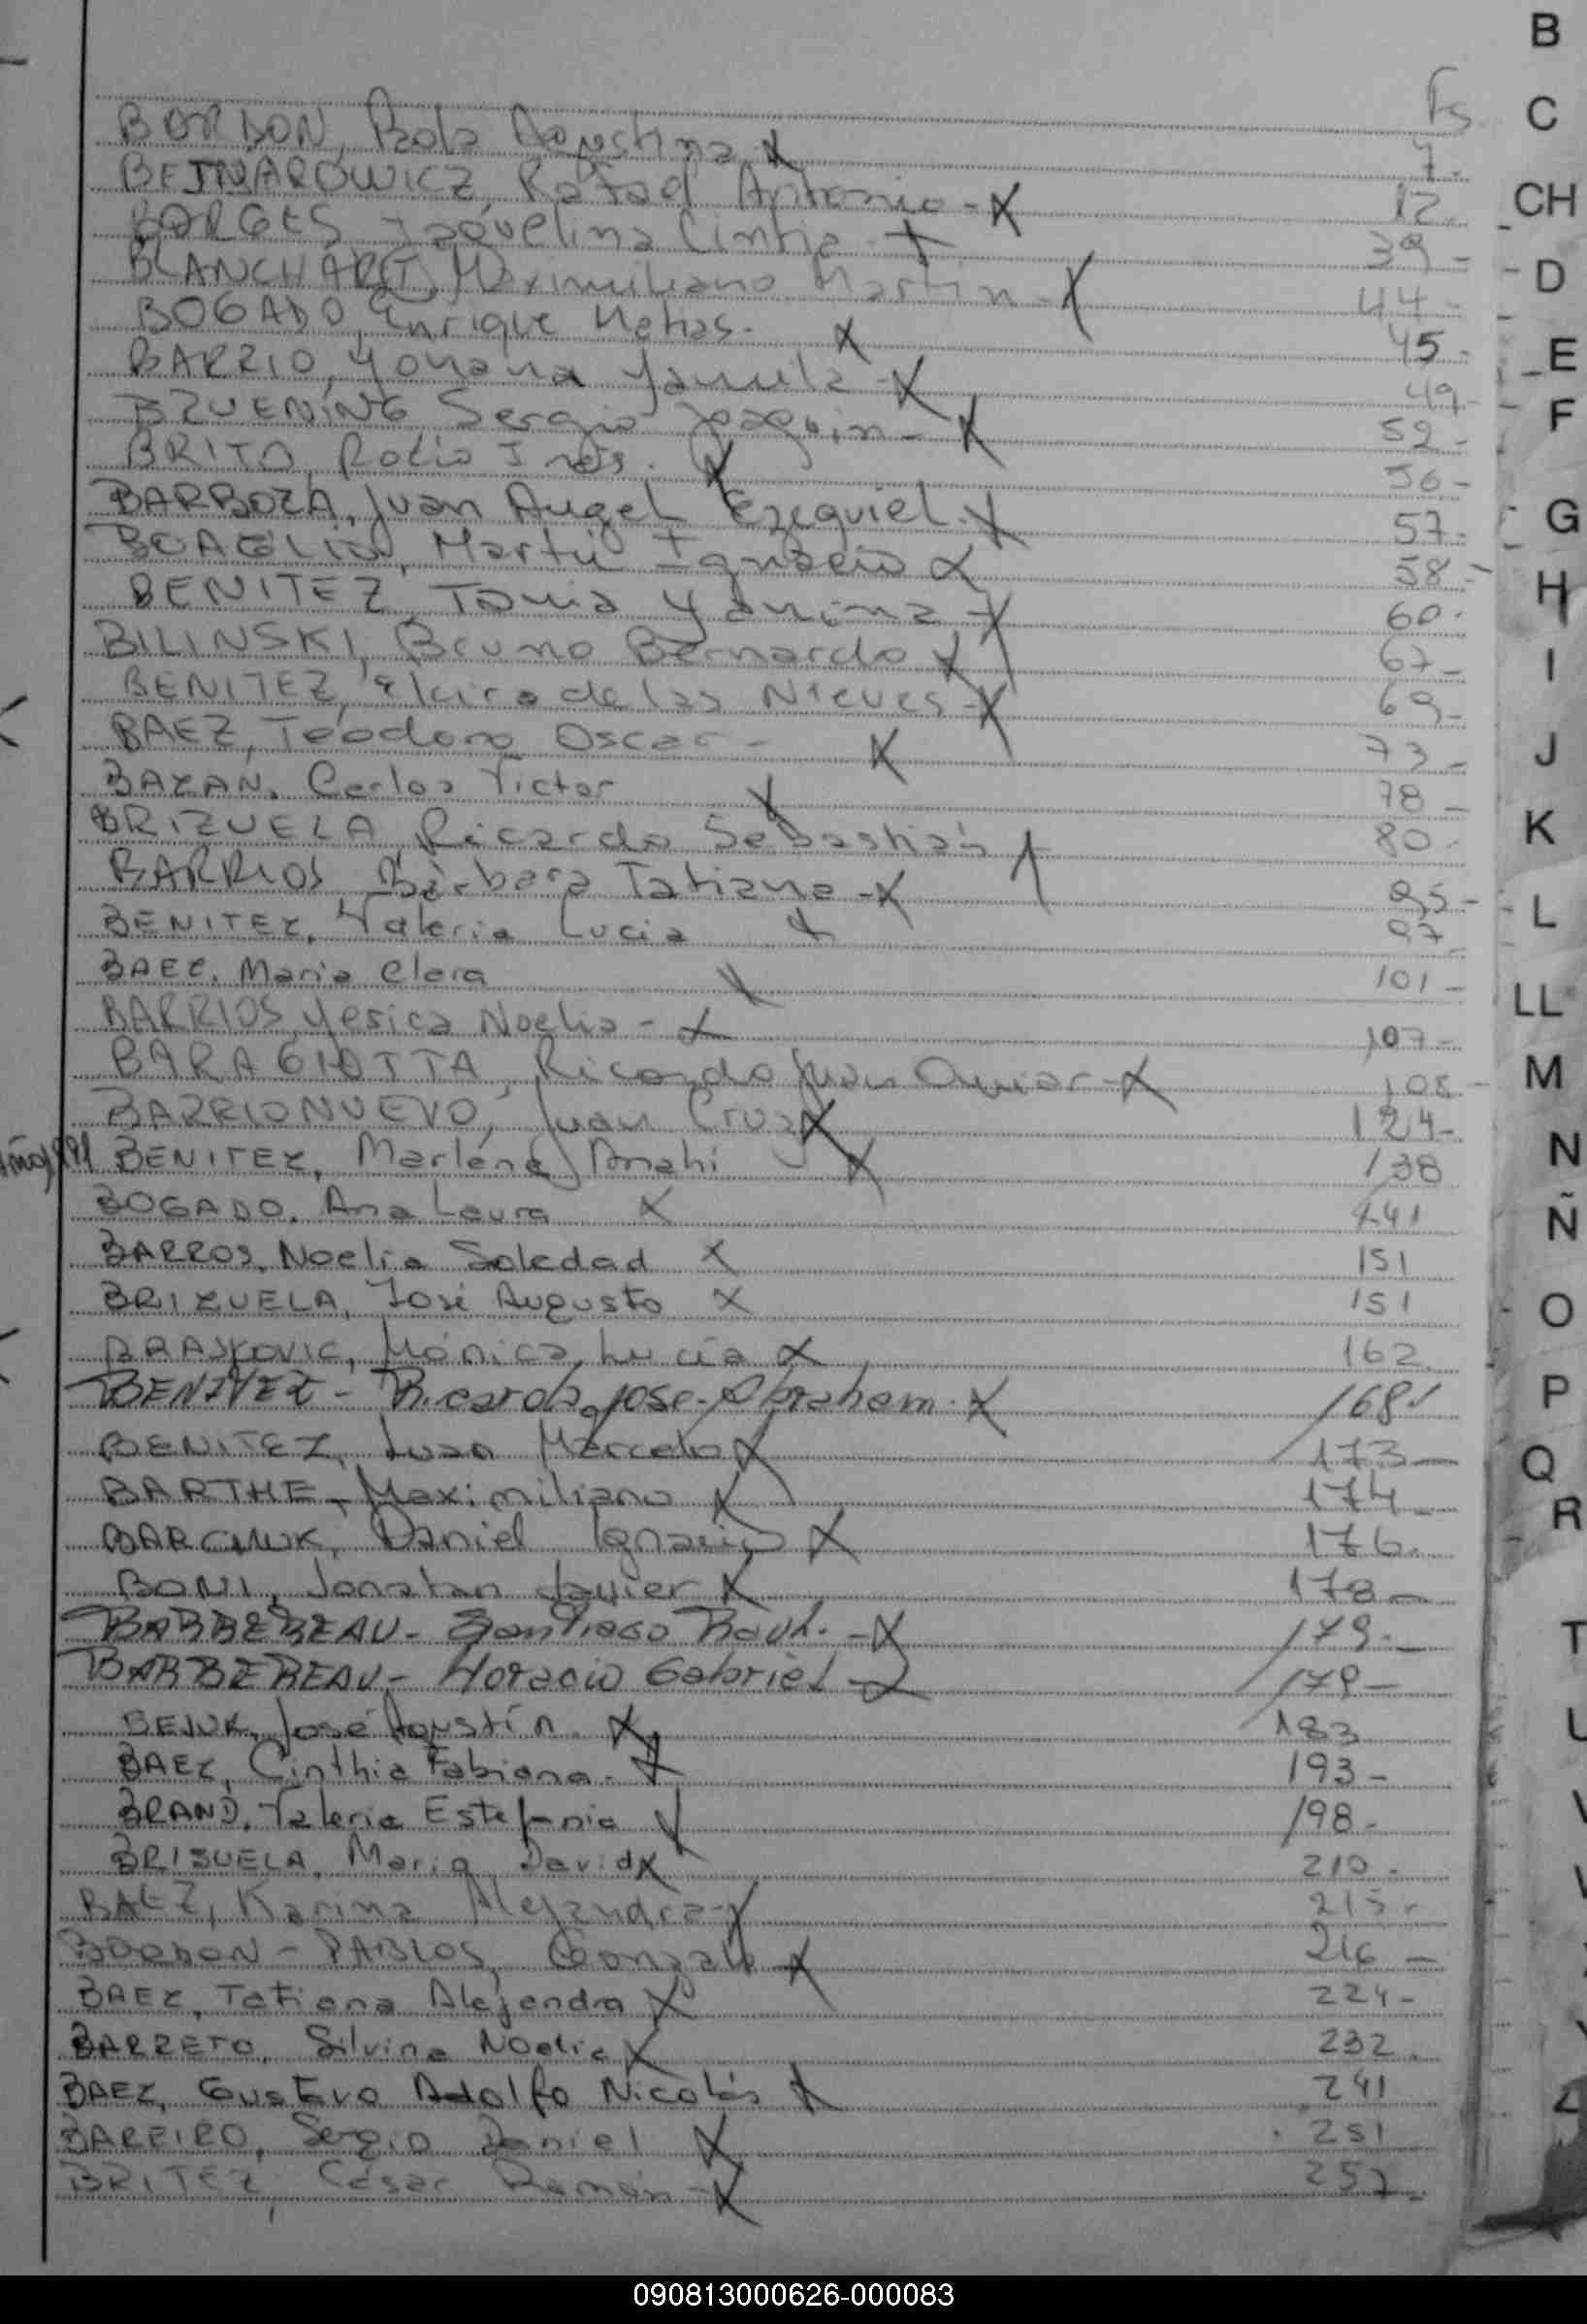 Fs
BORBON, Paola Agustina X 7.-
BEJNAROWICZ, Rafael Antonio - X 12.
BORGES Jaquelina Cintia - X 39 -
BLANCHART, Maximiliano Martin - X 44 -
BOGADO, Enrique Matias. X 45 -
BARRIO, Yohana Yamila - X 49 -
BRUENING Sergio Joaquin - X 52 -
BRITO, Rocio Inés. X 56 -
BARBOZA, Juan Angel Ezequiel. X 57.
BOAGLIO, Martin Ignacio X 58 -
BENITEZ, Tania Yanina - X 60.
BILINSKI, Bruno Bernardo X 67 -
BENITEZ, Elcira de las Nieves - X 69 -
BAEZ, Teodoro Oscar - X 73 -
BAZAN, Carlos Victor X 78 -
BRIZUELA, Ricardo Sebastián X 80 -
BARRIOS Bárbara Tatiana - X 95 -
BENITEZ, Valeria Lucia X 97 -
BAEZ, Maria Clara X 101 -
BARRIOS, Yesica Noelia - X 107 -
BARAGIOTTA, Ricardo Juan Omar - X 108 -
BARRIONUEVO, Juan Cruz X 124 -
Año 1991 BENITEZ, Marlene Anahi X 138
BOGADO, Ana Laura X 141
BARROS, Noelia Soledad X 151
BRIZUELA, José Augusto X 151
BRAJKOVIC, Mónica Lucía X 162
BENITEZ - Ricardo Jose - Abraham. X 168
BENITEZ, Juan Marcelo X 173 -
BARTHE, Maximiliano X 174 -
BARCHUK, Daniel Ignacio X 176.
BONI, Jonatan Javier X 178 -
BARBEREAU - Santiago Raul. - X 179. -
BARBEREAU - Horacio Gabriel - X 179 -
BEJUK, José Agustín. X 183
BAEZ, Cinthia Fabiana. X 193 -
BRAND, Valeria Estefania X 198 -
BRISUELA, Mario David X 210 -
BAEZ, Karina Alejandra - X 215 -
BORDON - PABLOS, Gonzalo X 216 -
BAEZ, Tatiana Alejandra X 224 -
BARRETO, Silvina Noelia X 232
BAEZ, Gustavo Adolfo Nicolás X 241
BAREIRO, Sergio Daniel X 251
BRITEZ, César Ramón - X 257 -
B
C
CH
D
E
F
G
H
I
J
K
L
LL
M
N
Ñ
O
P
Q
R
T
U
090813000626-000083